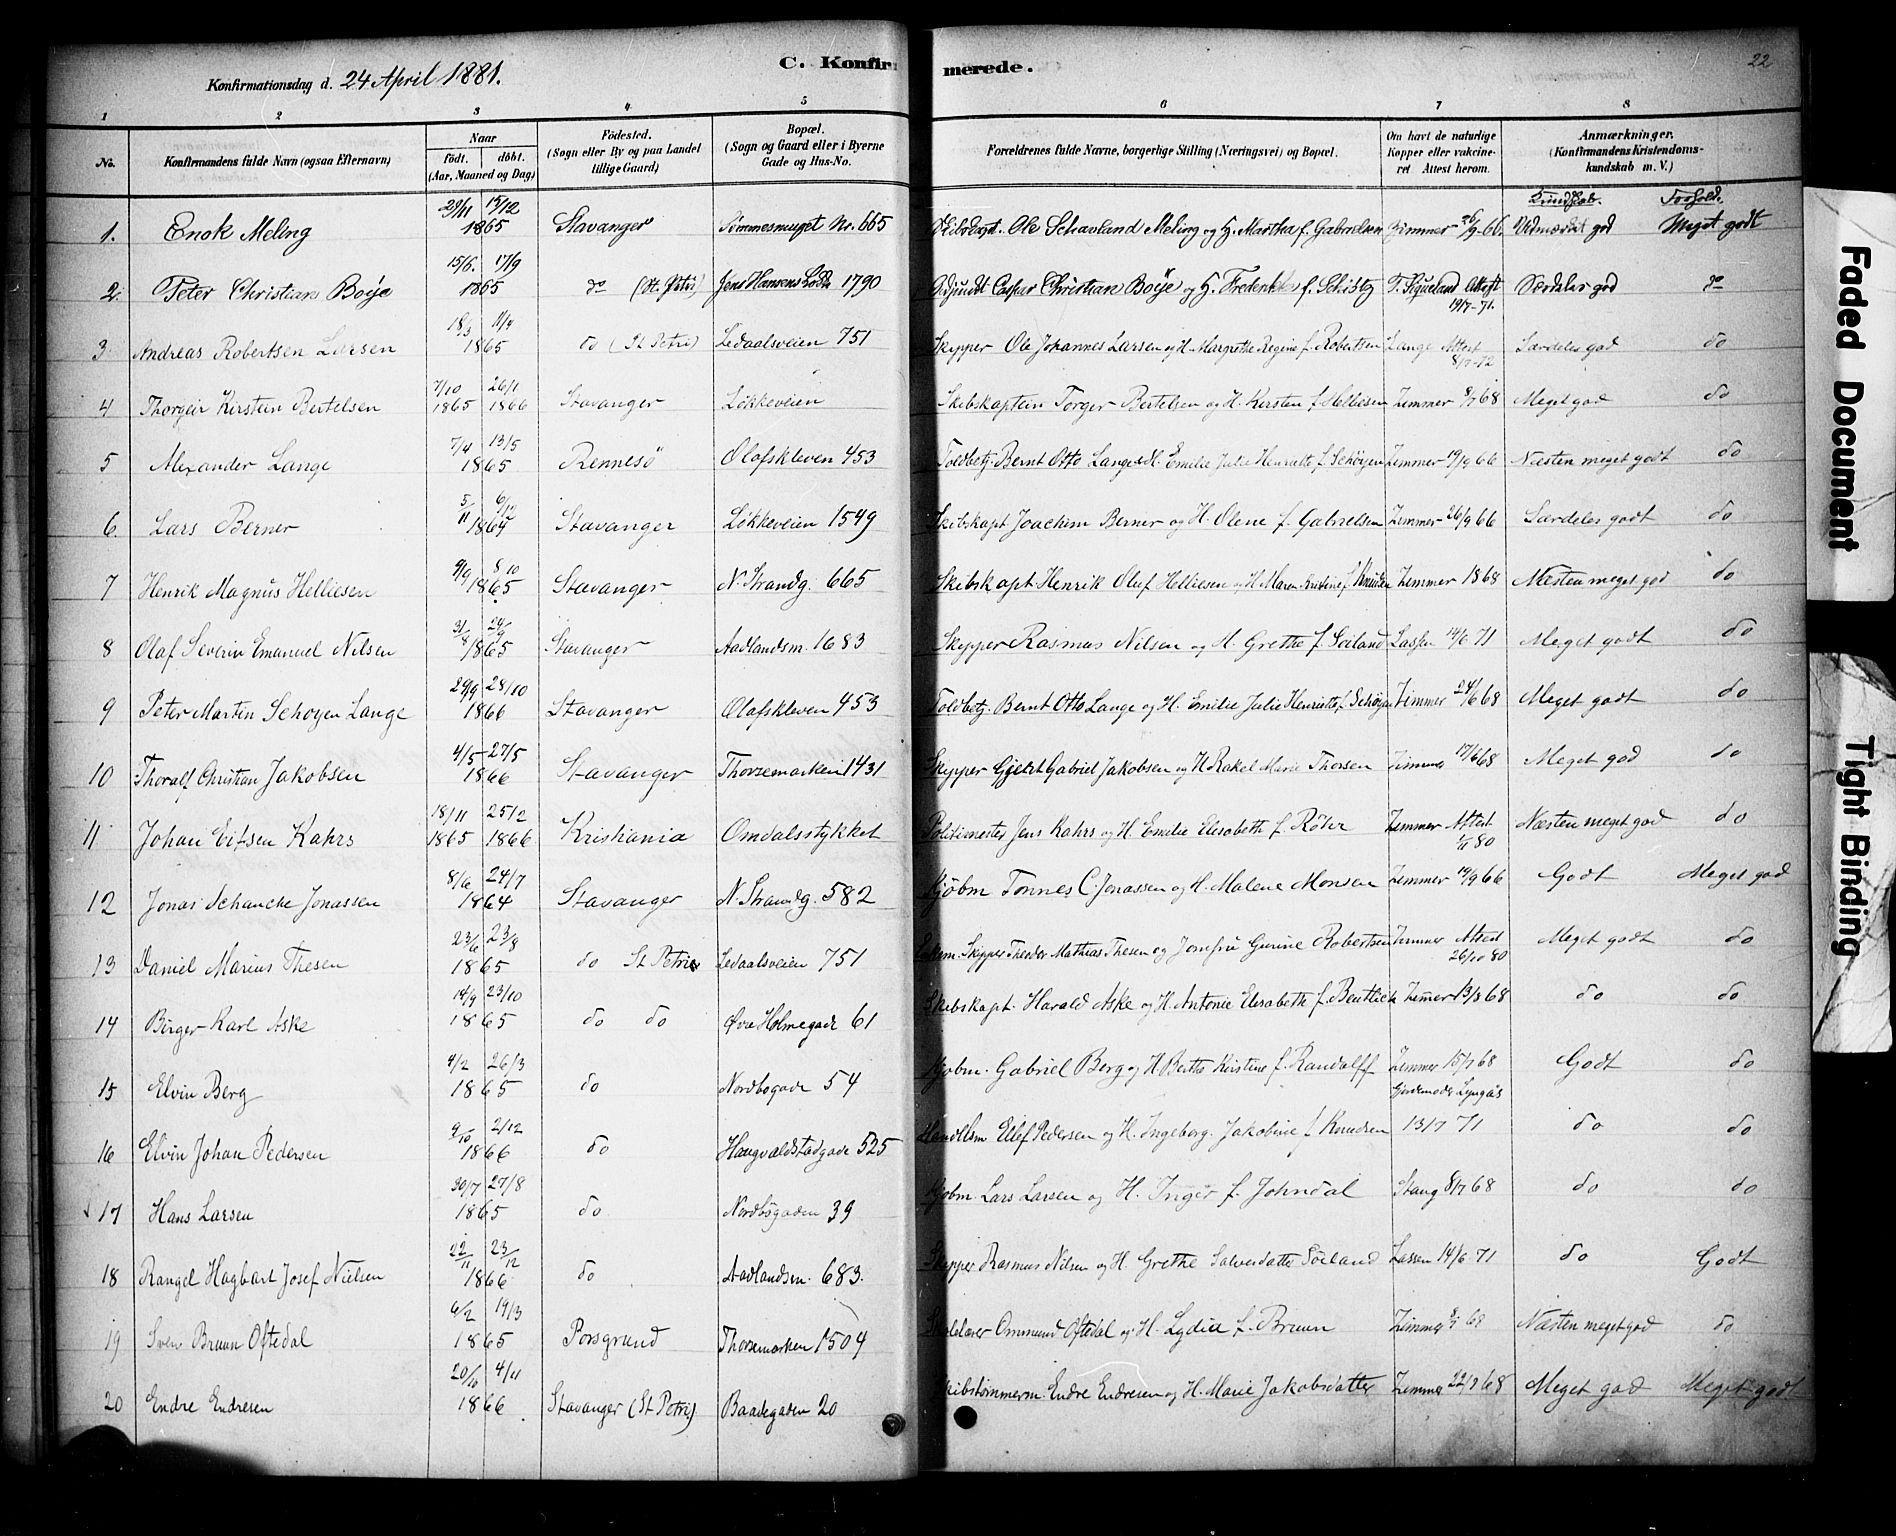 C. Konfirmerede.
22
Konfirmationsdag d. 24 April 1881.
1 2 3 4 5 6 7 8
No. Konfirmandens fulde Navn (ogsaa Efternavn) Naar født. døbt. (Aar, Maaned og Dag) Fødested. (Sogn eller By og paa Landet tillige Gaard) Bopæl. (Sogn og Gaard eller i Byerne Gade og Hus-No. Forældrenes fulde Navne, borgerlige Stilling (Næringsvei) og Bopæl. Om havt de naturlige Kopper eller vakcineret Attest herom. Anmærkninger. (Konfirmandens Kristendomskundskab m. V.)
Kundskab. Forhold.
1. Enok Meling 29/11 15/12 1865 Stavanger Nr. 665 Ole Schavland Meling og H. Martha f. Gabrielsen Zimmer 26/9-66. Udmærket god Meget godt
2. Peter Christian Boije 15/6. 17/9 1865 do (St. Petri) Jens Hansens 1790 Adjunkt Caspar Christian Boije og H. f. Schiøtz Attest 19/7-71. Særdeles god do
3 Andreas Robertsen Larsen 18/3 11/4 1865 do (St Petri) Ledaalsveien 751 Skipper Ole Johannes Larsen og H. Margrethe Regine f. Robertsen Lange Attest 8/7-72 Særdeles god do
4 Thorgeir Kirstein Bertelsen 7/10 1865 26/1 1866 Stavanger Løkkeveien Skibskaptein Torger Bertelsen og H. Kirsten f. Helliesen Zimmer 8/7 68 Meget god do
5 Alexander Lange 7/4 13/5 1865 Rennesö Olafskleven 453 Toldbetj. Bernt Otto Lange & H. Emilie Julie Henriette f. Schöyen Zimmer 19/9 66 Næsten meget godt do
6. Lars Berner 5/11 6/12 1864 Stavanger Løkkeveien 1549 Skibskapt Joachim Berner og H. Olene f. Gabrielsen Zimmer 26/9 66 Særdeles godt do
7 Henrik Magnus Helliesen 9/9 8/10 1865 Stavanger N. Strandg. 665 Skibskapt Henrik Oluf Helliesen og H. Maren Kristine f. Knudsen Zimmer 1868 Næsten meget god do
8 Olaf Severin Emanuel Nilsen 31/8 24/9 1865 Stavanger Aadlandsm. 1683 Skipper Rasmus Nilsen og H. Grethe f. Soiland Lassen 14/6 71 Meget godt do
9 Peter Martin Schöyen Lange 29/9 28/10 1866 Stavanger Olafskleven 453 Toldbetj. Bernt Otto Lange og H. Emilie Julie Henriette f. Schöyen Zimmer 24/6 68 Meget godt do
10 Thoralf Christian Jakobsen 4/5 27/5 1866 Stavanger Thorsemarken 1431 Skipper Gabriel Jakobsen og H Rakel Marie Thorsen Zimmer 17/6 68 Meget god do
11 Johan Kahrs 18/11 1865 25/2 1866 Kristiania Omdalsstykket Politimester Jens Kahrs og H. Emilie Elisabeth f. Zimmer Attest 80 Næsten meget god do
12 Jonas Schancke Jonassen 8/6 24/7 1864 Stavanger N. Strandg. 582 Kjöbm Tonnes C. Jonassen og H. Malene Monsen Zimmer 19/9 66 Godt Meget god
13 Daniel Marius Thesen 23/6 23/8 1865 do St Petri Ledaalsveien 751 Skipper Theodor Mathias Thesen og Jomfru Gurine Robertsen Zimmer Attest 26/10 80 Meget godt do
14 Birger Karl Aske 14/9 23/10 1865 do do Øvre Holmegade 61 Skibskapt. Harald Aske og H. Antonie Elisabeth f. Bentlich Zimmer 13/3 68 do do
15 Elvin Berg 4/2 26/3 1865 do Nordbogade 54 Kjöbm. Gabriel Berg og H. Kristine f. Randulff Zimmer 15/7 68 Godt do
16 Elvin Johan Pedersen 9/10 2/12 1866 do Haugvaldstadgade 525 Handelsm Ellef Pedersen og H. Ingeborg Jakobine f. Knudsen Gjordemoder Lyngås 13/7 71 do do
17 Hans Larsen 30/7 27/8 1865 do Nordbögaden 39 Kjöbm. Lars Larsen og H. Inger f. Johndal Stang 8/7 68 do do
18 Rangel Hagbart Josef Nielsen 22/11 23/12 1866 do Aadlandsm. 683. Skipper Rasmus Nilsen og H. Grethe Salvesdatter Söiland Lassen 14/6 71 do Godt
19 Sven Bruun Oftedal 6/2 19/3 1865 Porsgrund Thorsemarken 1504 Skolelærer Ommund Oftedal og H. Lydia f. Bruun Zimmer 68 Næsten meget god do
20 Endre Endresen 20/10 4/11 1866 Stavanger (St Petri) Baadegaden 20 Skibstömmerm. Endre Endresen og H. Marie Jakobsdatter Zimmer 22/7 68 Meget god Meget godt
Faded Document
Tight Binding